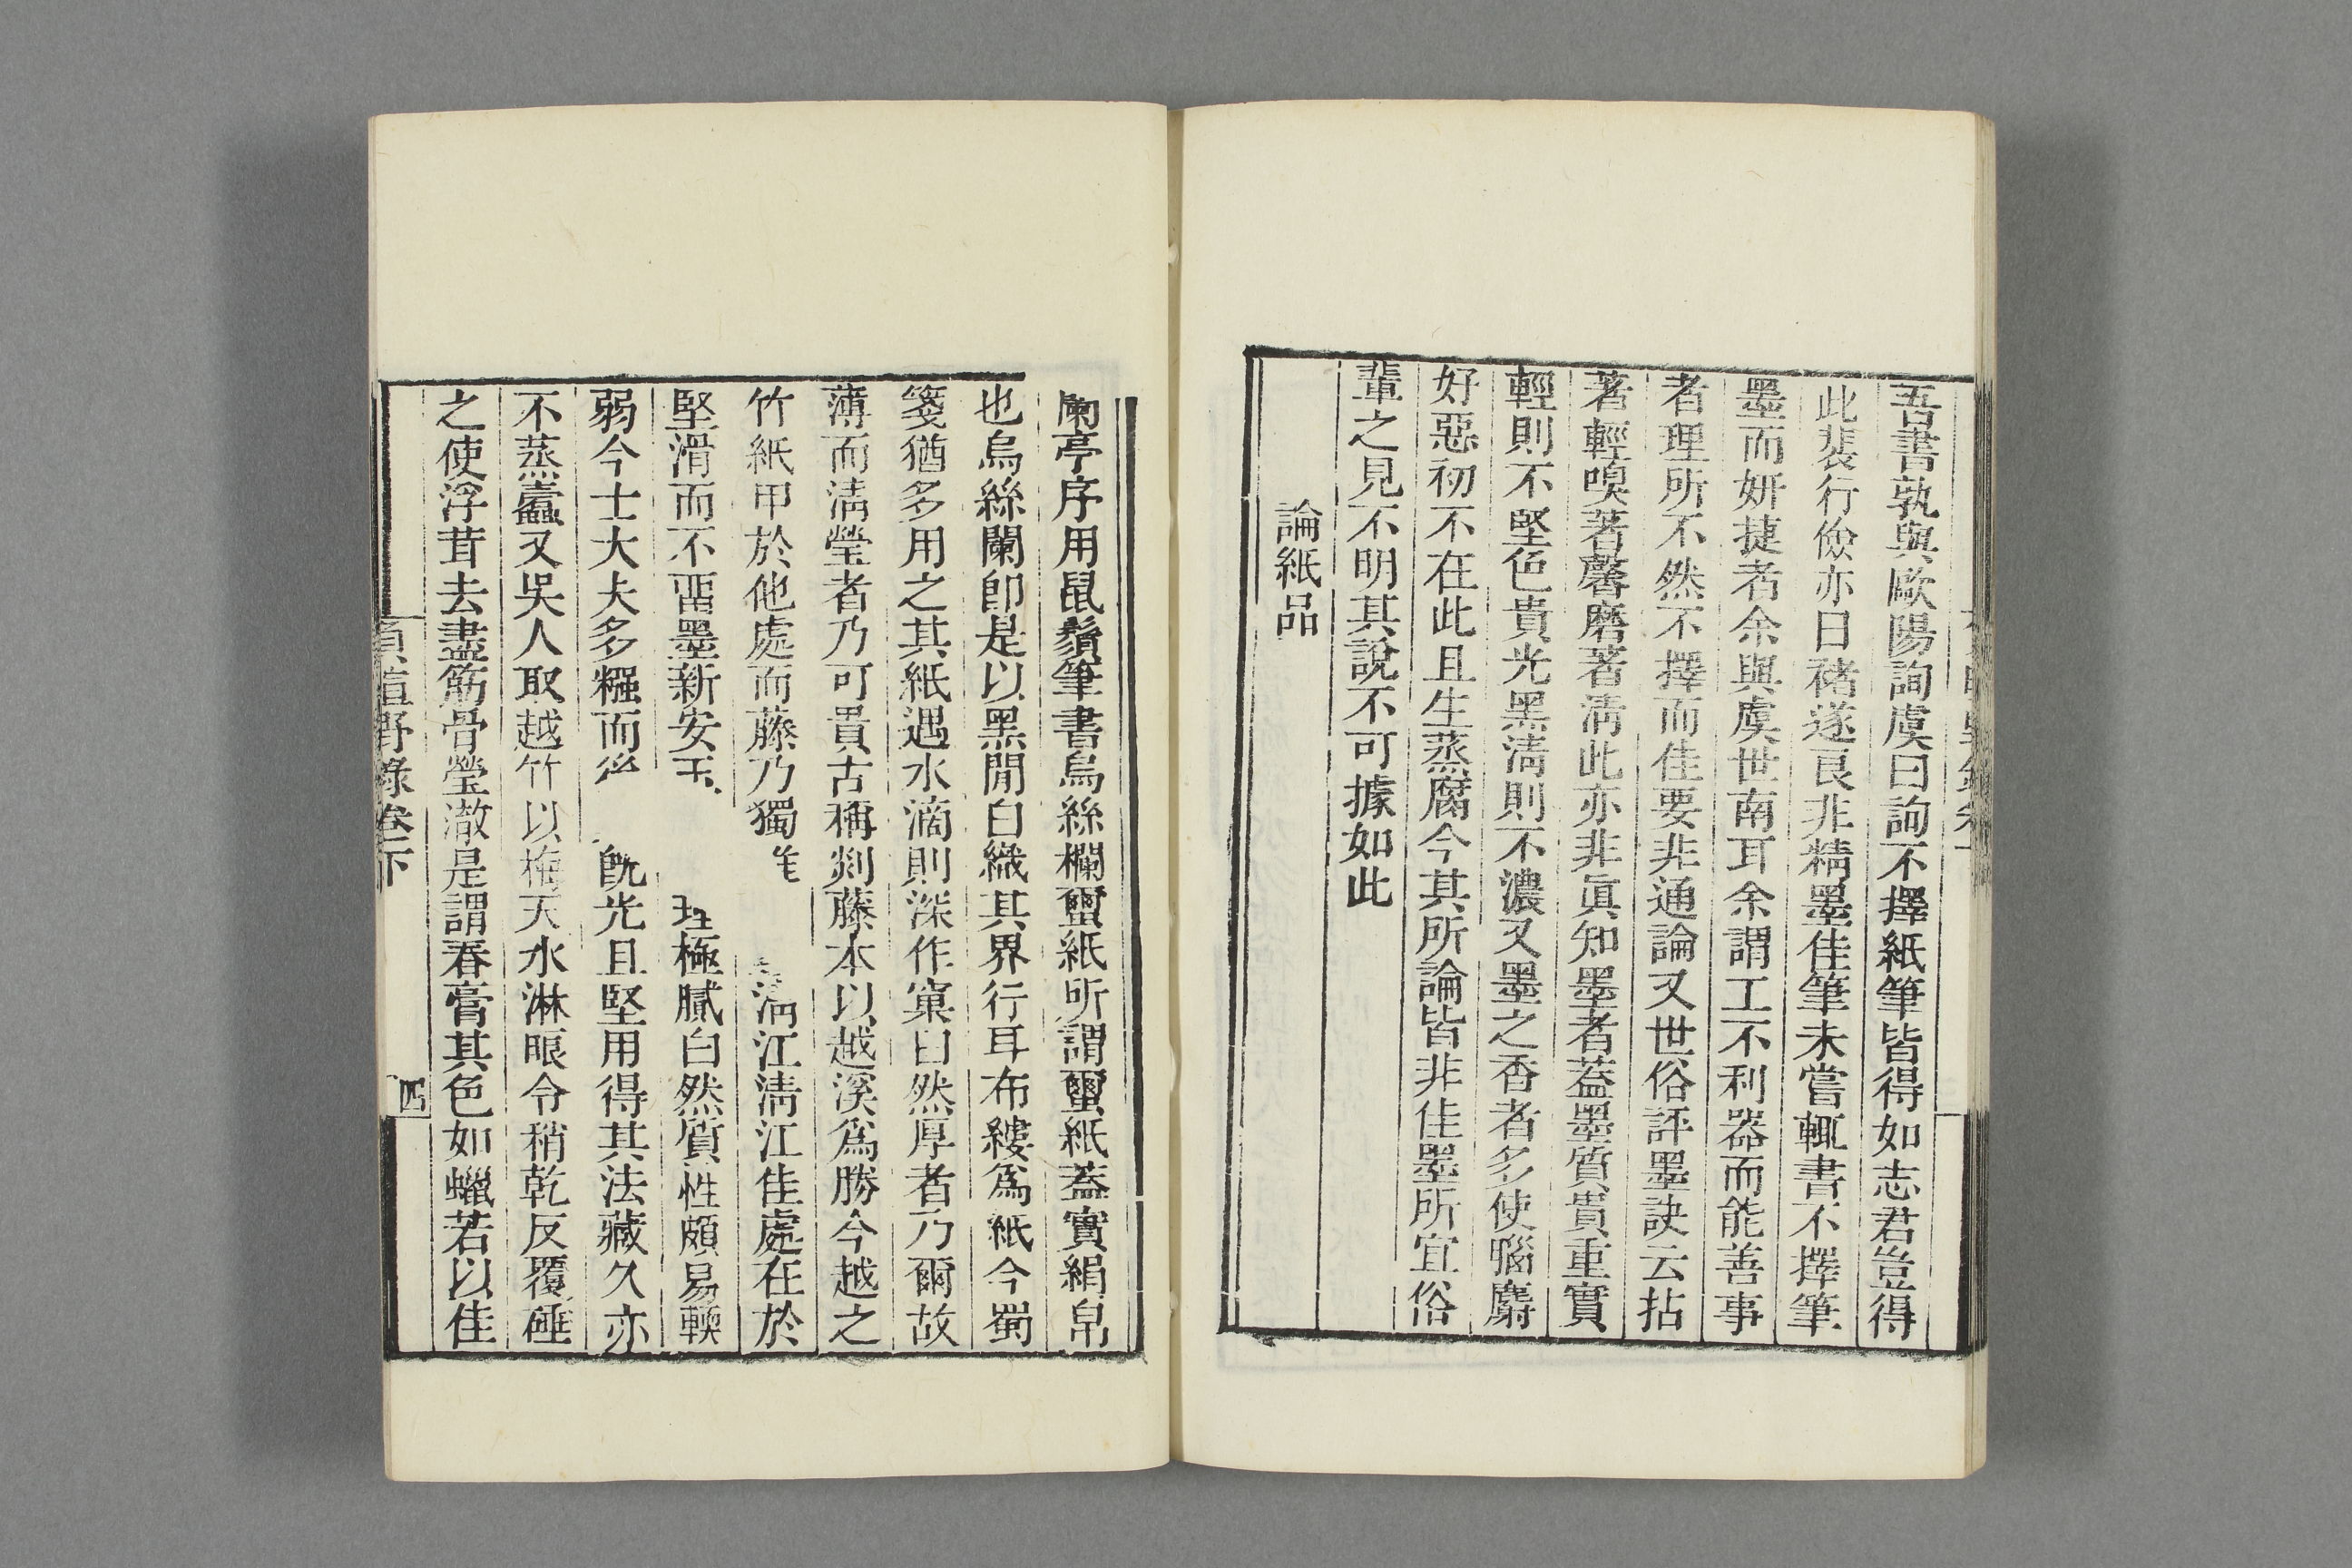 吾書孰與歐陽詢虞曰詢不擇紙筆皆得如志君豈得
此裴行儉亦曰褚遂良非精墨佳筆未嘗輒書不擇筆
墨而妍捷者余與虞世南耳余謂工不利器而能善事
者理所不然不擇而佳要非通論又世俗評墨訣云拈
著輕嗅著馨磨著淸此亦非眞知墨者蓋墨質貴重實
輕則不堅色貴光黑淸則不濃又墨之香者多使腦麝
好惡初不在此且生蒸腐今其所論皆非佳墨所宜俗
輩之見不明其說不可據如此
論紙品
蘭亭序用鼠鬚筆書烏絲欄蠒紙所謂蠒紙蓋實絹帛
也烏絲闌卽是以黑閒白織其界行耳布縷爲紙今蜀
箋猶多用之其紙遇水滴則深作窠臼然厚者乃爾故
薄而淸瑩者乃可貴古稱剡藤本以越溪爲勝今越之
竹紙甲於他處而藤乃獨淸江淸江佳處在於
堅滑而不畱墨新安玉理極膩白然質性頗易輭
弱今士大夫多糨而旣光且堅用得其法藏久亦
不蒸蠹又吳人取越竹以梅天水淋眼令稍乾反覆硾
之使浮茸去盡筋骨瑩澈是謂春膏其色如蠟若以佳
負暄野錄卷下
四